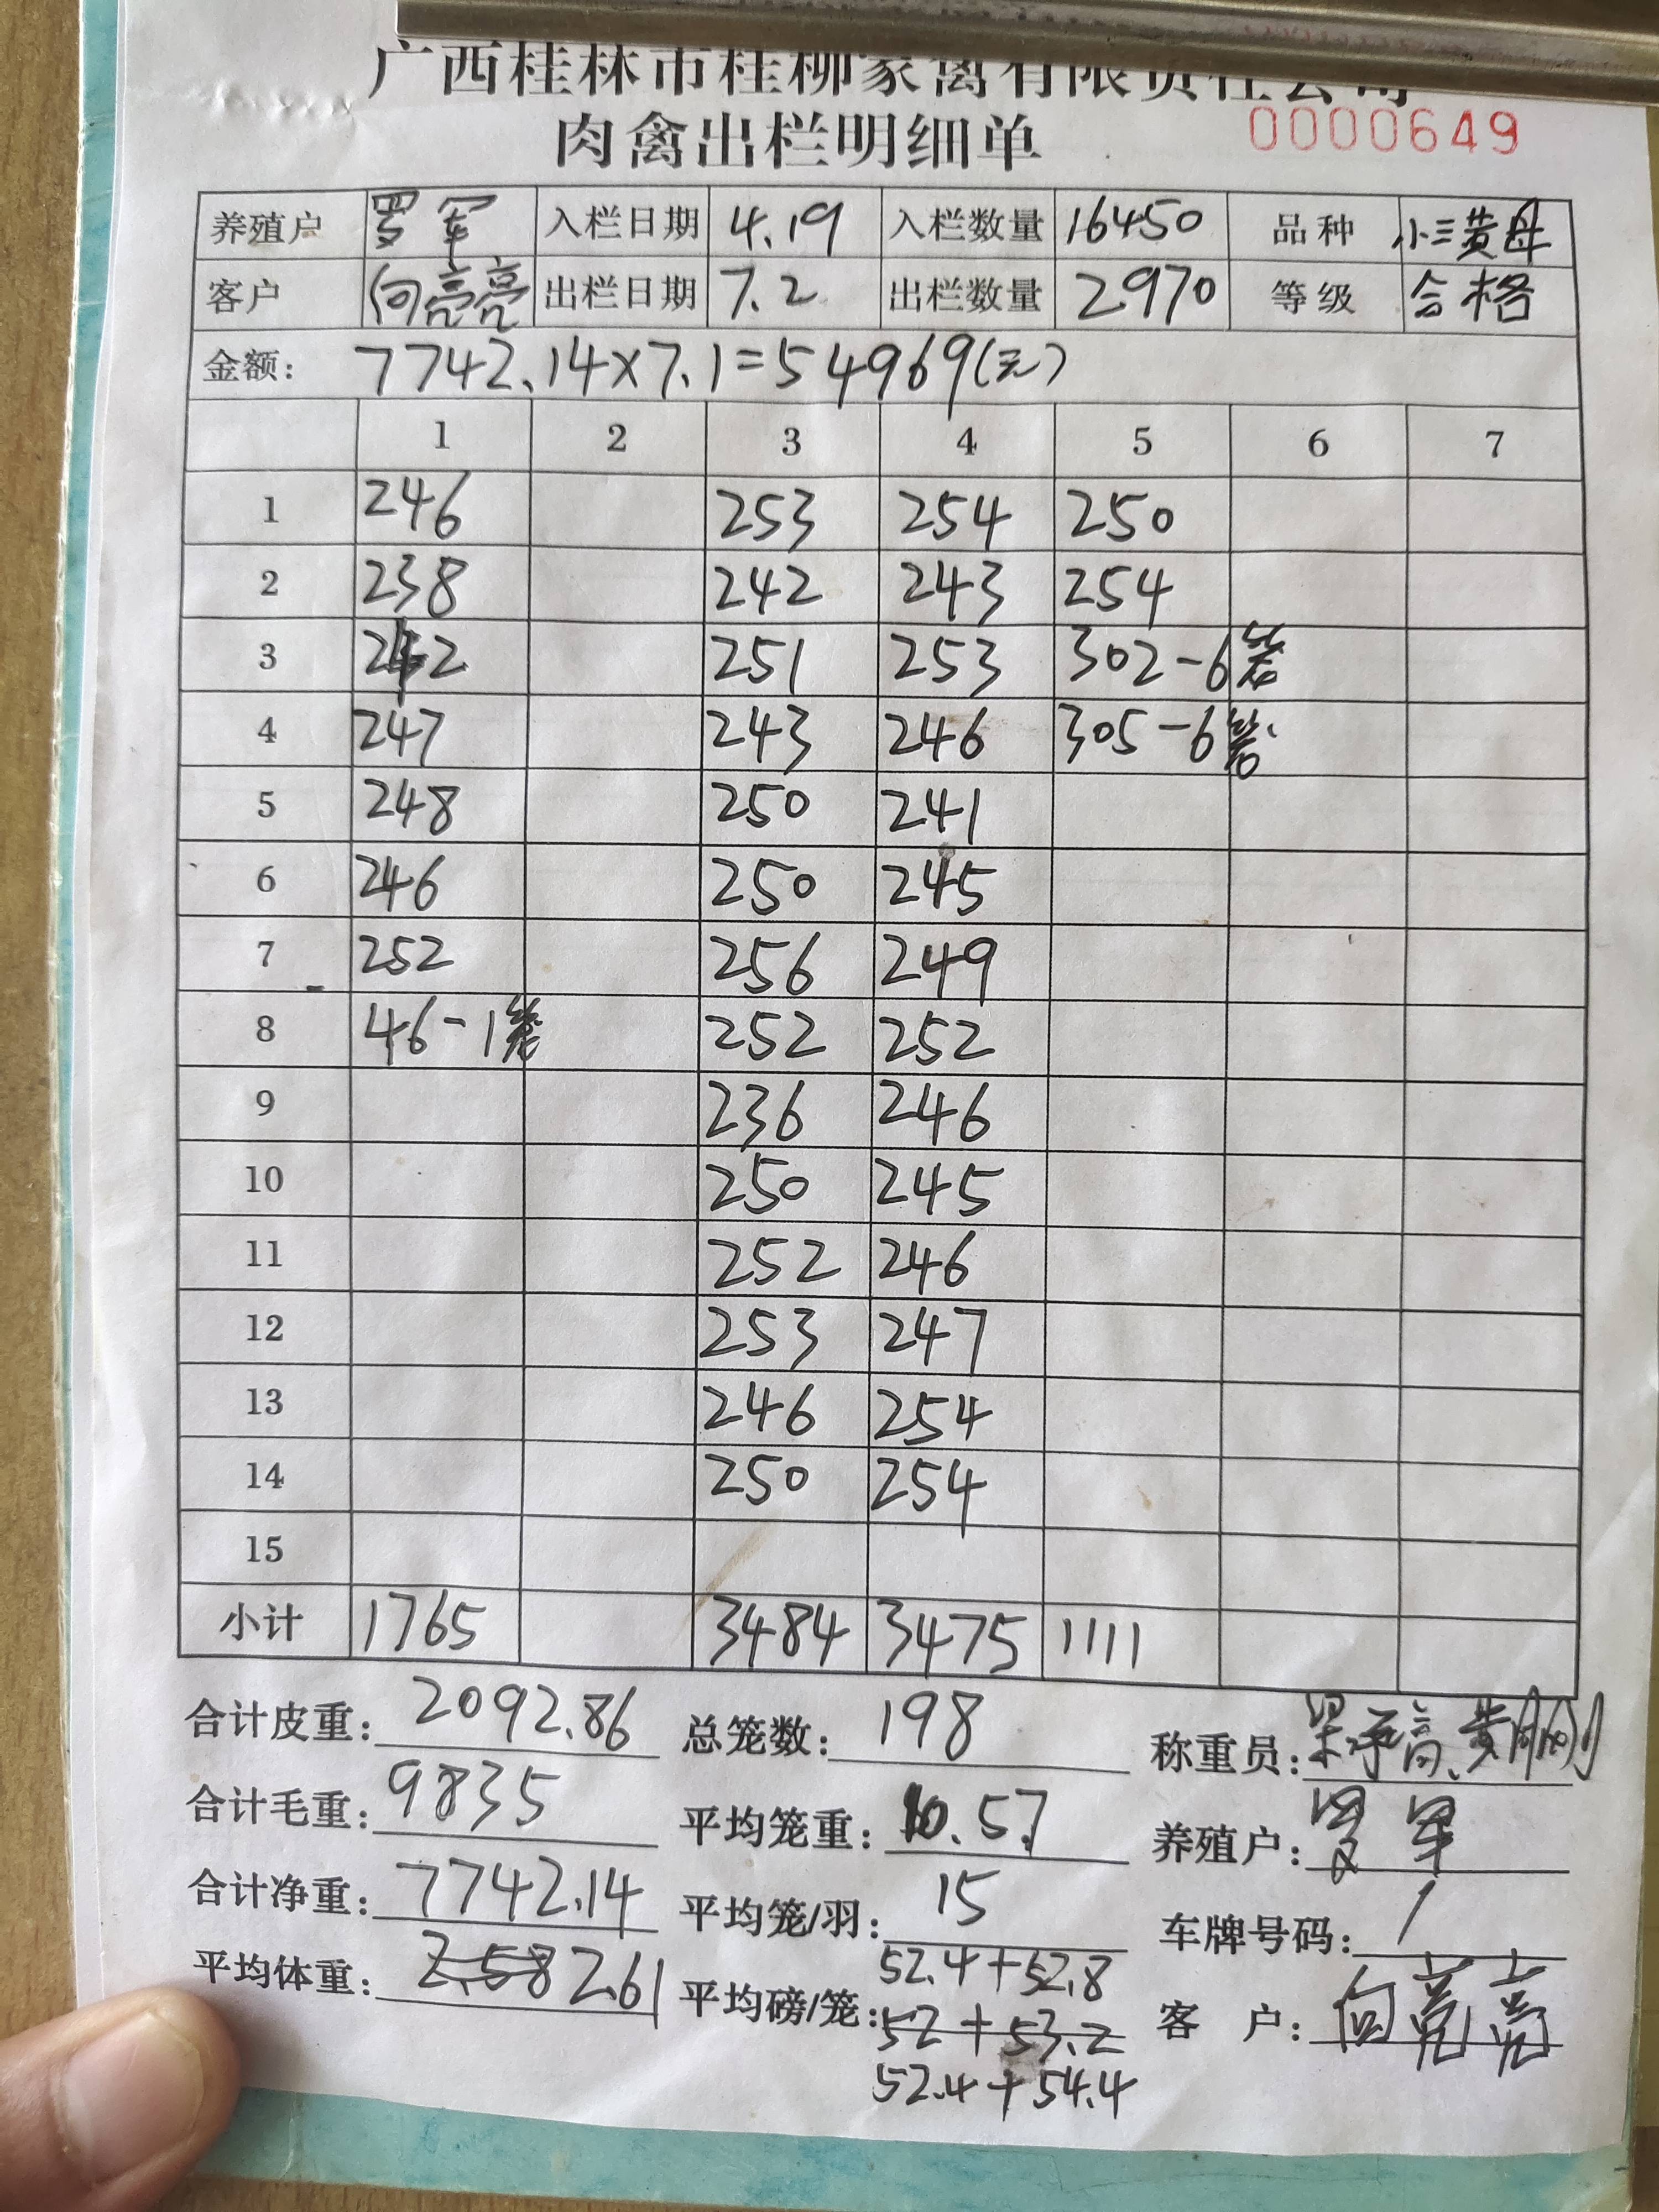 广西桂林市桂柳家禽有限责任公司
肉禽出栏明细单 0000649
养殖户 罗军 入栏日期 4.19 入栏数量 16450 品种 小三黄母
客户 向亮亮 出栏日期 7.2 出栏数量 2970 等级 合格
金额: 7742.14×7.1=54969(元)
1 2 3 4 5 6 7
1 246 253 254 250
2 238 242 243 254
3 242 251 253 302-6笼
4 247 243 246 305-6笼
5 248 250 241
6 246 250 245
7 252 256 249
8 46-1笼 252 252
9 236 246
10 250 245
11 252 246
12 253 247
13 246 254
14 250 254
15
小计 1765 3484 3475 1111
合计皮重: 2092.86 总笼数: 198 称重员:
合计毛重: 9835 平均笼重: 10.57 养殖户: 罗军
合计净重: 7742.14 平均笼/羽: 15 车牌号码: /
平均体重: 2.61 平均磅/笼: 52.4+52.8 客 户: 向亮亮
52+53.2
52.4+54.4